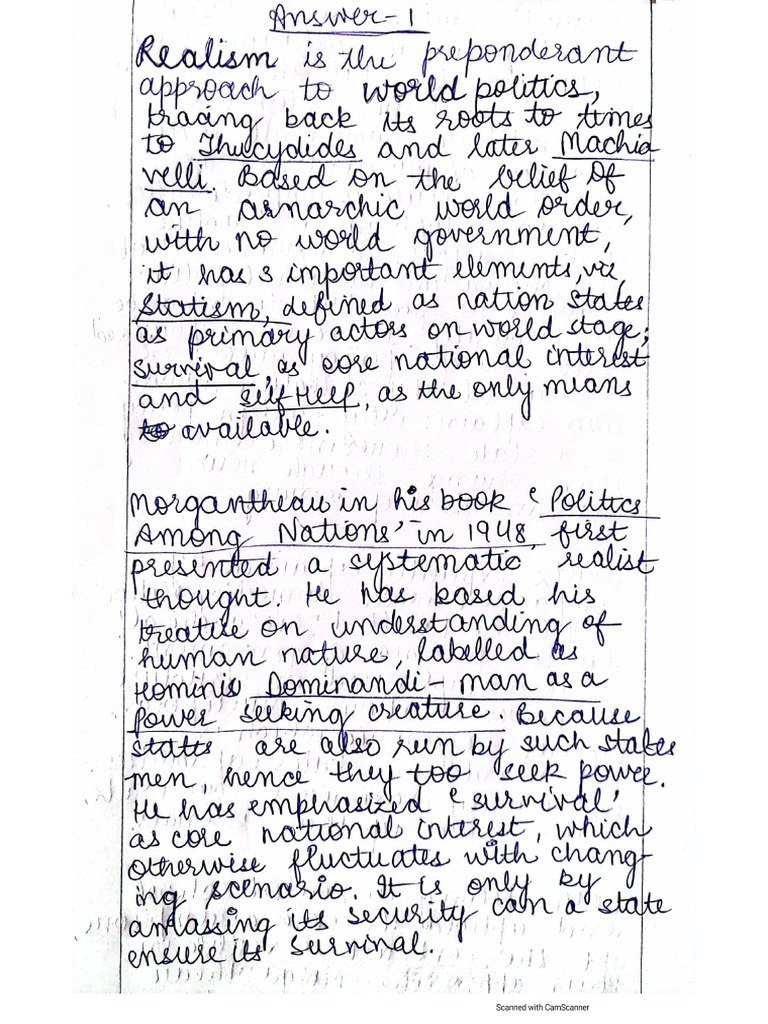 Answer-1
Realism is the preponderant
approach to world politics,
tracing back its roots to times
to Thucydides and later Machia
velli. Based on the belief of
an asnarchic world order,
with no world government,
it has 3 important elements, viz,
Statism, defined as nation states
as primary actors on world stage;
survival, as core national interest
and self Help, as the only means
to available.
Morgantheau in his book 'Politics
Among Nations' in 1948, first
presented a systematic realist
thought. He has based his
treatise on understanding of
human nature, labelled as
Hominis Dominandi - man as a
power seeking creature. Because
states are also run by such states
men, hence they too seek power.
He has emphasized 'survival'
as core national interest, which
otherwise fluctuates with chang-
ing scenario. It is only by
amassing its security can a state
ensure its survival.
Scanned with CamScanner